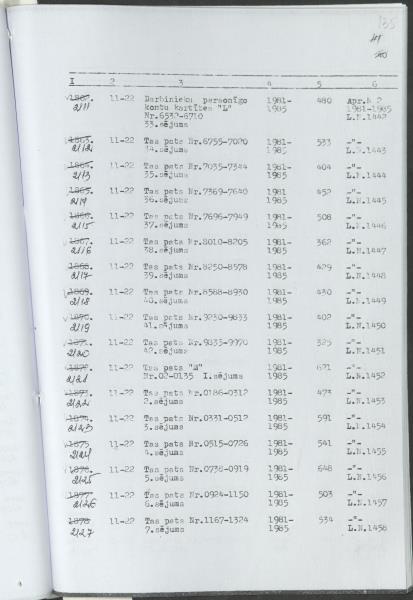 135
1 2 3 4 5 6
1862. 11-22 Darbinieku personīgo 1981- 480 Apr.№ 2
2111 kontu kartītes "L" 1985 1981-1985
Nr.6532-6710 L.N.1442
33.sējums
1863. 11-22 Tas pats Nr.6755-7020 1981- 533 -"-
2112 34.sējums 1985 L.N.1443
1864. 11-22 Tas pats Nr.7035-7344 1981- 404 -"-
2113 35.sējums 1985 L.N.1444
1865. 11-22 Tas pats Nr.7369-7640 1981- 452 -"-
2114 36.sējums 1985 L.N.1445
1866. 11-22 Tas pats Nr.7696-7949 1981- 508 -"-
2115 37.sējums 1985 L.N.1446
1867. 11-22 Tas pats Nr.8010-8205 1981- 362 -"-
2116 38.sējums 1985 L.N.1447
1868. 11-22 Tas pats Nr.8250-8578 1981- 429 -"-
2117 39.sējums 1985 L.N.1448
1869. 11-22 Tas pats Nr.8588-8930 1981- 430 -"-
2118 40.sējums 1985 L.N.1449
1870. 11-22 Tas pats Nr.9230-9833 1981- 402 -"-
2119 41.sējums 1985 L.N.1450
1871. 11-22 Tas pats Nr.9835-9970 1981- 325 -"-
2120 42.sējums 1985 L.N.1451
1872. 11-22 Tas pats 1981- 621 -"-
2121 Nr.02-0135 I.sējums 1985 L.N.1452
1873. 11-22 Tas pats Nr.0186-0312 1981- 473 -"-
2122 2.sējums 1985 L.N.1453
1874. 11-22 Tas pats Nr.0331-0512 1981- 591 -"-
2123 3.sējums 1985 L.N.1454
1875 11-22 Tas pats Nr.0515-0726 1981- 541 -"-
2124 4.sējums 1985 L.N.1455
1876. 11-22 Tas pats Nr.0738-0919 1981- 648 -"-
2125 5.sējums 1985 L.N.1456
1877 11-22 Tas pats Nr.0924-1150 1981- 503 -"-
2126 6.sējums 1985 L.N.1457
1878 11-22 Tas pats Nr.1167-1324 1981- 534 -"-
2127 7.sējums 1985 L.N.1458